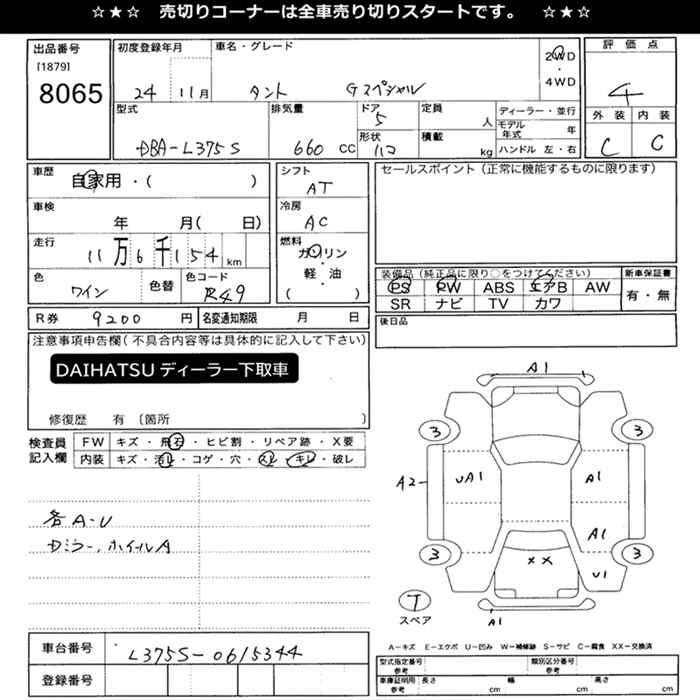 ☆★☆ 売切りコーナーは全車売り切りスタートです。 ☆★☆
出品番号
[1879]
8065
初度登録年月
24 11月
車名・グレード
タント Gスペシャル
2WD
・
4WD
評価点
4
外装 内装
C C
型式
DBA-L375S
排気量
660 CC
ドア
5
形状
ハコ
定員
人
積載
kg
ディーラー・並行
モデル年式 年
ハンドル 左・右
車歴
自家用・( )
車検
年 月( 日)
走行
11万6千154km
色
ワイン
色替
色コード
R49
シフト
AT
冷房
AC
燃料
ガソリン
・
軽・油
( )
セールスポイント(正常に機能するものに限ります)
装備品(純正品に限り○をつけてください)
PS PW ABS エアB AW
SR ナビ TV カワ
新車保証書
有・無
R券 9200 円
名変通知期限 月 日
後日品
注意事項申告欄(不具合内容等は具体的に記入して下さい)
DAIHATSU ディーラー下取車
修復歴 有〔箇所 〕
検査員
記入欄
FW キズ・飛石・ヒビ割・リペア跡・X要
内装 キズ・汚れ・コゲ・穴・スレ・キレ・破レ
各A・U
ホイルA
A1
3 3
A2 UA1 A1
A1
3 3
XX U1
T
スペア
A1
A-キズ E-エクボ U-凹み W-補修跡 S-サビ C-腐食 XX-交換済
車台番号
L375S-0615344
登録番号
型式指定番号
参考
類別区分番号
参考
車庫証明用
参考
長さ cm 幅 cm 高さ cm